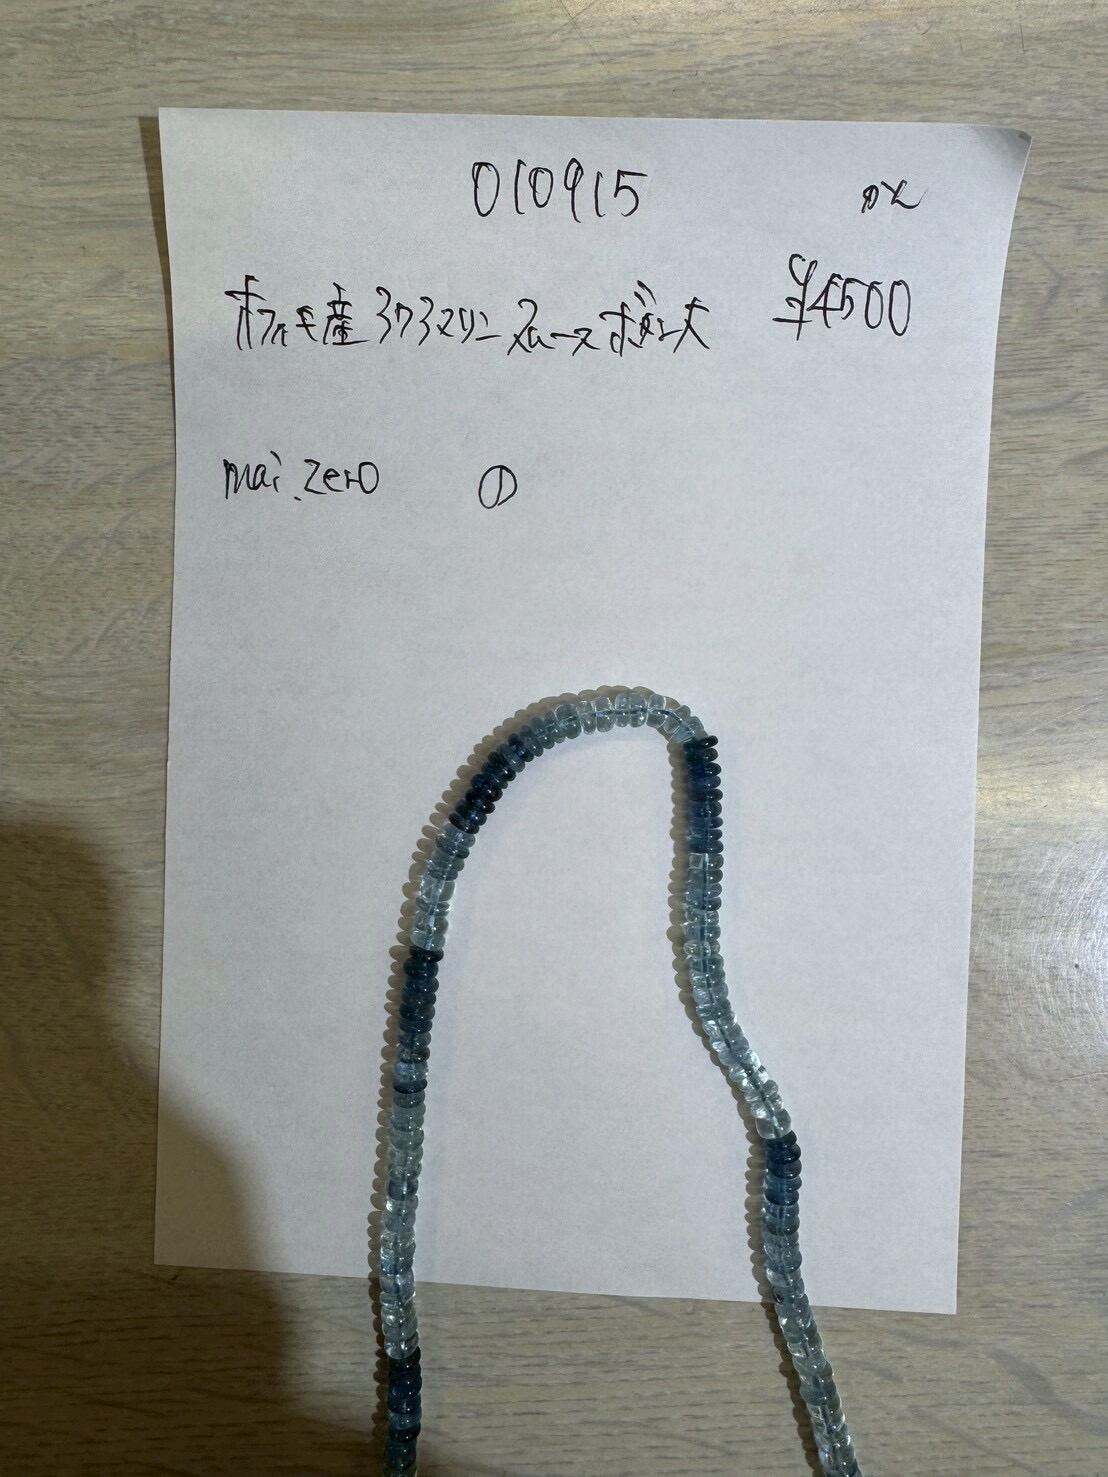 010915
産アクアマリン スムースボタン大 ¥4500
mai.zero ①